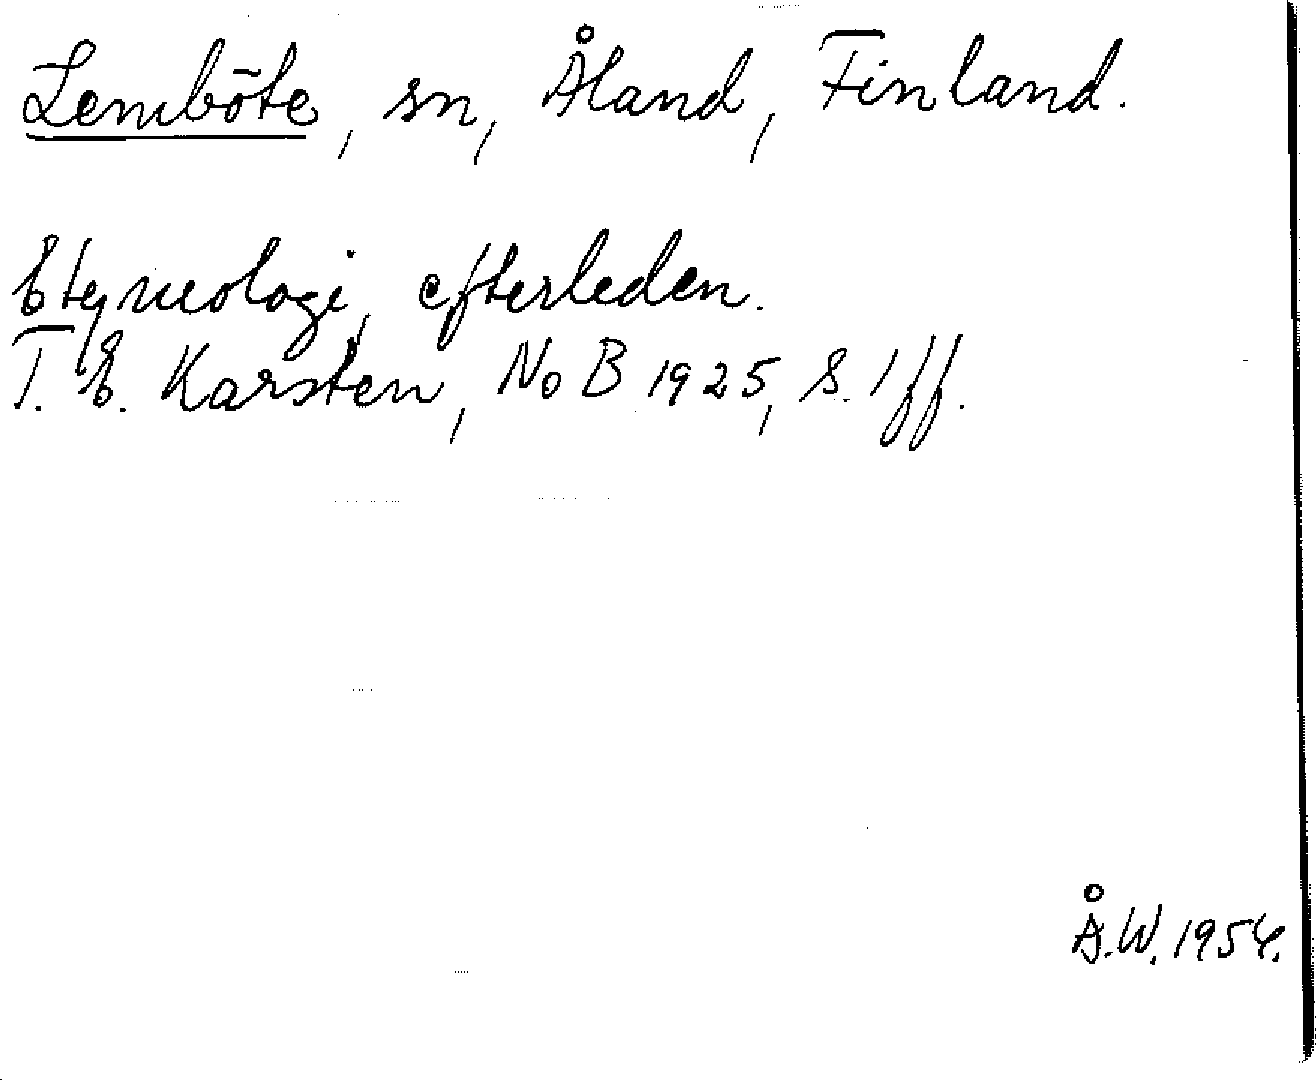 Lemböte, sn, Åland, Finland.
Etymologi, efterleden.
T. E. Karsten, NoB 1925, S. 1 ff.
Å.W. 1954.